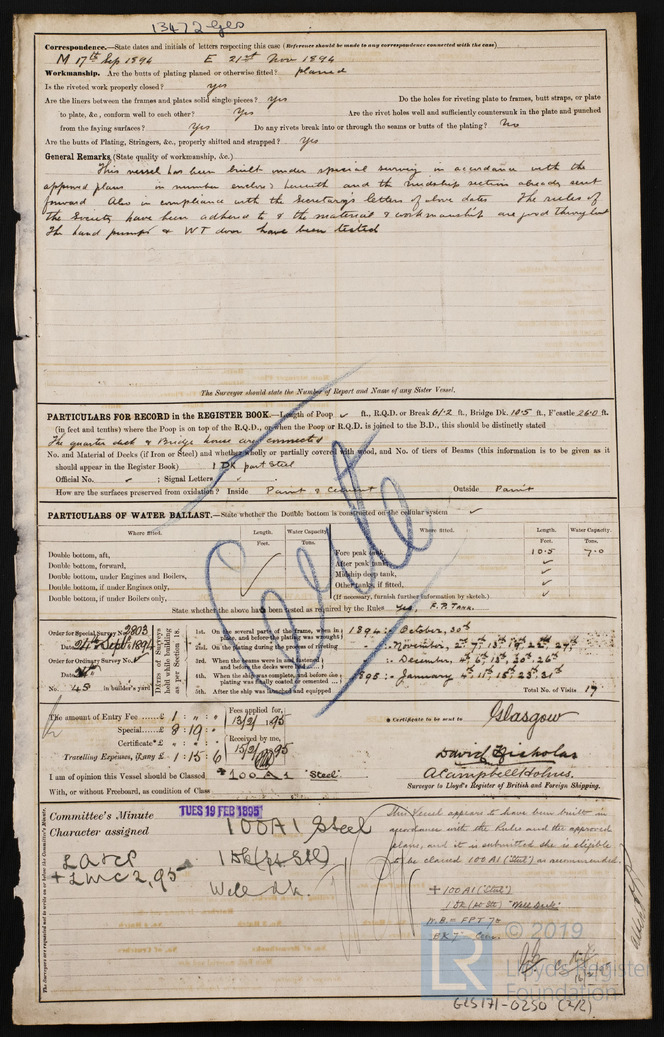 13472 Gls
Correspondence.—State dates and initials of letters respecting this case (Reference should be made to any correspondence connected with the case)
M 17th Sep 1894 E 21st Nov 1894
Workmanship. Are the butts of plating planed or otherwise fitted? planed
Is the riveted work properly closed? yes
Are the liners between the frames and plates solid single pieces? yes Do the holes for riveting plate to frames, butt straps, or plate
to plate, &c., conform well to each other? Yes Are the rivet holes well and sufficiently countersunk in the plate and punched
from the faying surfaces? Yes Do any rivets break into or through the seams or butts of the plating? No
Are the butts of Plating, Stringers, &c., properly shifted and strapped? Yes
General Remarks (State quality of workmanship, &c.)
This vessel has been built under special survey in accordance with the
approved plans in number enclosed herewith and the midship section already sent
forward Also in compliance with the Secretary's letters of above dates The rules of
the Society have been adhered to & the material & workmanship are good throughout
The hand pumps & WT door have been tested
The Surveyor should state the Number of Report and Name of any Sister Vessel.
PARTICULARS FOR RECORD in the REGISTER BOOK.—Length of Poop ✓ ft., R.Q.D. or Break 61.2 ft., Bridge Dk. 10.5 ft., F'castle 26.0 ft.
(in feet and tenths) where the Poop is on top of the R.Q.D., or when the Poop or R.Q.D. is joined to the B.D., this should be distinctly stated
The quarter deck & Bridge house are connected
No. and Material of Decks (if Iron or Steel) and whether wholly or partially covered with wood, and No. of tiers of Beams (this information is to be given as it
should appear in the Register Book) 1 DK part Steel
Official No. ; Signal Letters
How are the surfaces preserved from oxidation? Inside Paint & Cement Outside Paint
PARTICULARS OF WATER BALLAST.—State whether the Double bottom is constructed on the cellular system ✓
Where fitted. Length. Water Capacity. Where fitted. Length. Water Capacity.
Feet. Tons. Feet. Tons.
Double bottom, aft, Fore peak tank, 10.5 7.0
Double bottom, forward, After peak tank, ✓
Double bottom, under Engines and Boilers, Midship deep tank, ✓
Double bottom, if under Engines only, Other tanks, if fitted, ✓
Double bottom, if under Boilers only, (If necessary, furnish further information by sketch.)
State whether the above have been tested as required by the Rules Yes, F.P. Tank.
Cert
Order for Special Survey No. 2803
Date 24th Sept 1894
Order for Ordinary Survey No.
Date
No. 45 in builder's yard
Dates of Surveys held while building as per Section 18.
1st. On the several parts of the frame, when in place, and before the plating was wrought 1894: October, 30th
2nd. On the plating during the process of riveting November, 2nd 7th 13th 19th 22nd 27th
3rd. When the beams were in and fastened, and before the decks were laid December, 4th 6th 13th 20th 26th
4th. When the ship was complete, and before the plating was finally coated or cemented 1895: January 4th 11th 15th 23rd 31st
5th. After the ship was launched and equipped Total No. of Visits 17
The amount of Entry Fee £ 1 : " : "
Special £ 8 : 19 : "
Certificate £ " : " : "
Travelling Expenses, if any £ 1 : 15 : 6
Fees applied for, 13/2/1895
Received by me, 15/2/1895
Certificate to be sent to Glasgow
David Nicholas
A Campbell Holms.
Surveyor to Lloyd's Register of British and Foreign Shipping.
I am of opinion this Vessel should be Classed + 100 A1 "Steel"
With, or without Freeboard, as condition of Class
Committee's Minute TUES 19 FEB 1895
Character assigned 100A1 Steel
1 Dk (pt Stl)
Well dk.
LA&CP
+ LMC 2,95
This Vessel appears to have been built in
accordance with the Rules and the approved
plans, and it is submitted she is eligible
to be classed 100 A1 ("Steel") as recommended.
+ 100 A1 ("Steel")
1 Dk (pt Stl) "Well Deck"
W.B. = FPT 7t
The Surveyors are requested not to write on or below the Committee's Minute.
© 2019
LR
Lloyd's Register
Foundation
GLS171-0250 (2/2)